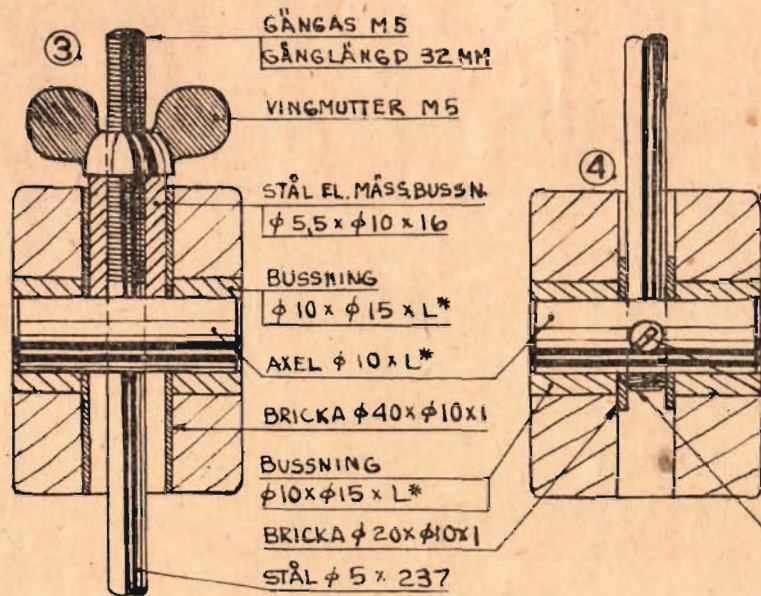 ③.
GÄNGAS M5
GÄNGLÄNGD 32 MM
VINGMUTTER M5
④.
STÅL EL. MÄSS.BUSSN.
ϕ 5,5 x ϕ 10 x 16
BUSSNING
ϕ 10 x ϕ 15 x L*
AXEL ϕ 10 x L*
BRICKA ϕ 40 x ϕ 10 x 1
BUSSNING
ϕ10 x ϕ15 x L*
BRICKA ϕ 20 x ϕ10 x 1
STÅL ϕ 5 x 237